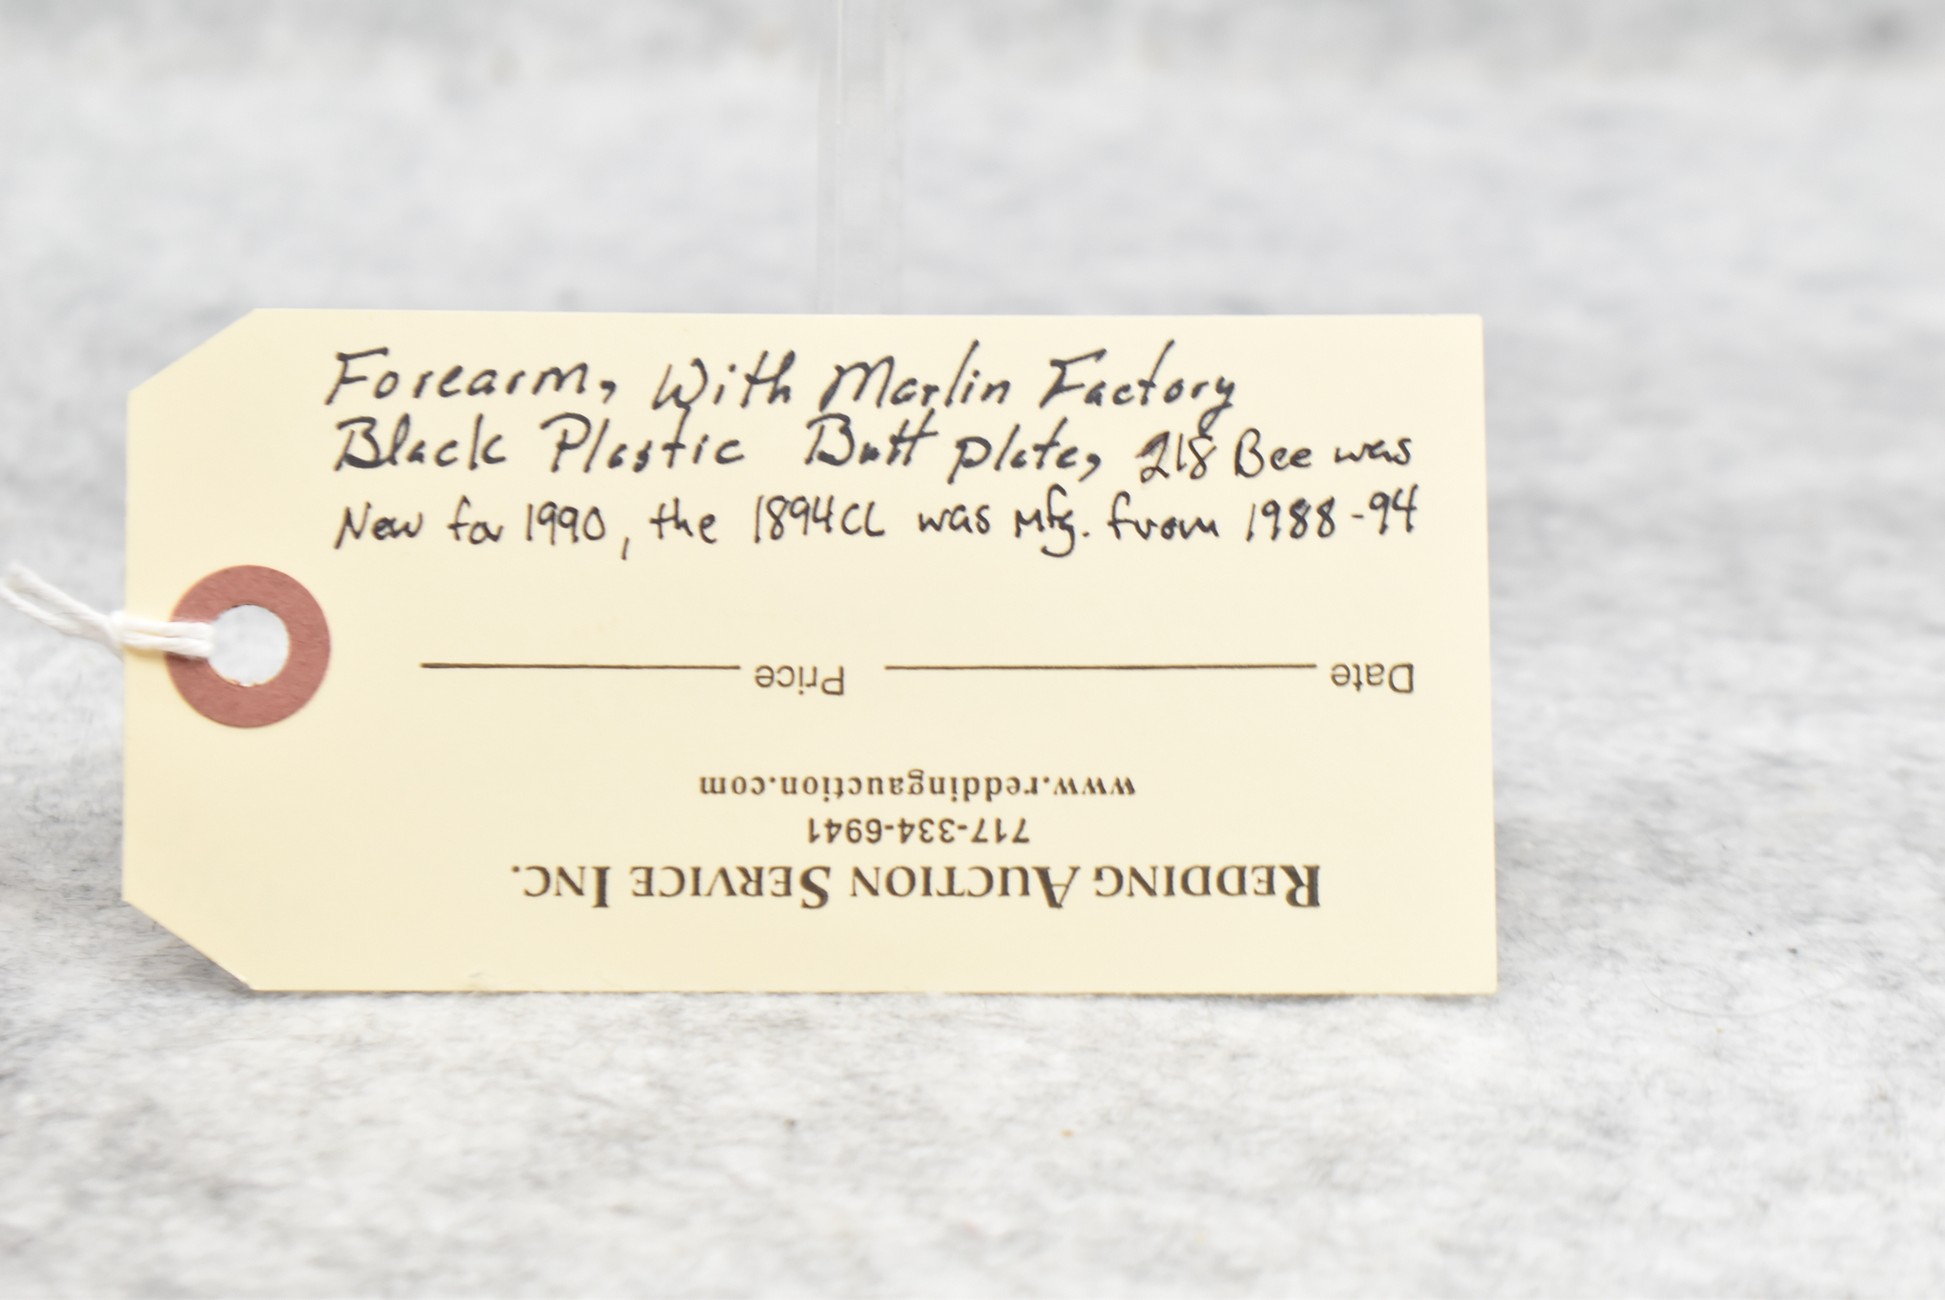 Forearm, With Marlin Factory
Black Plastic Butt plate, 218 Bee was
New for 1990, the 1894CL was Mfg. from 1988-94
REDDING AUCTION SERVICE INC.
717-334-6941
www.reddingauction.com
Date Price